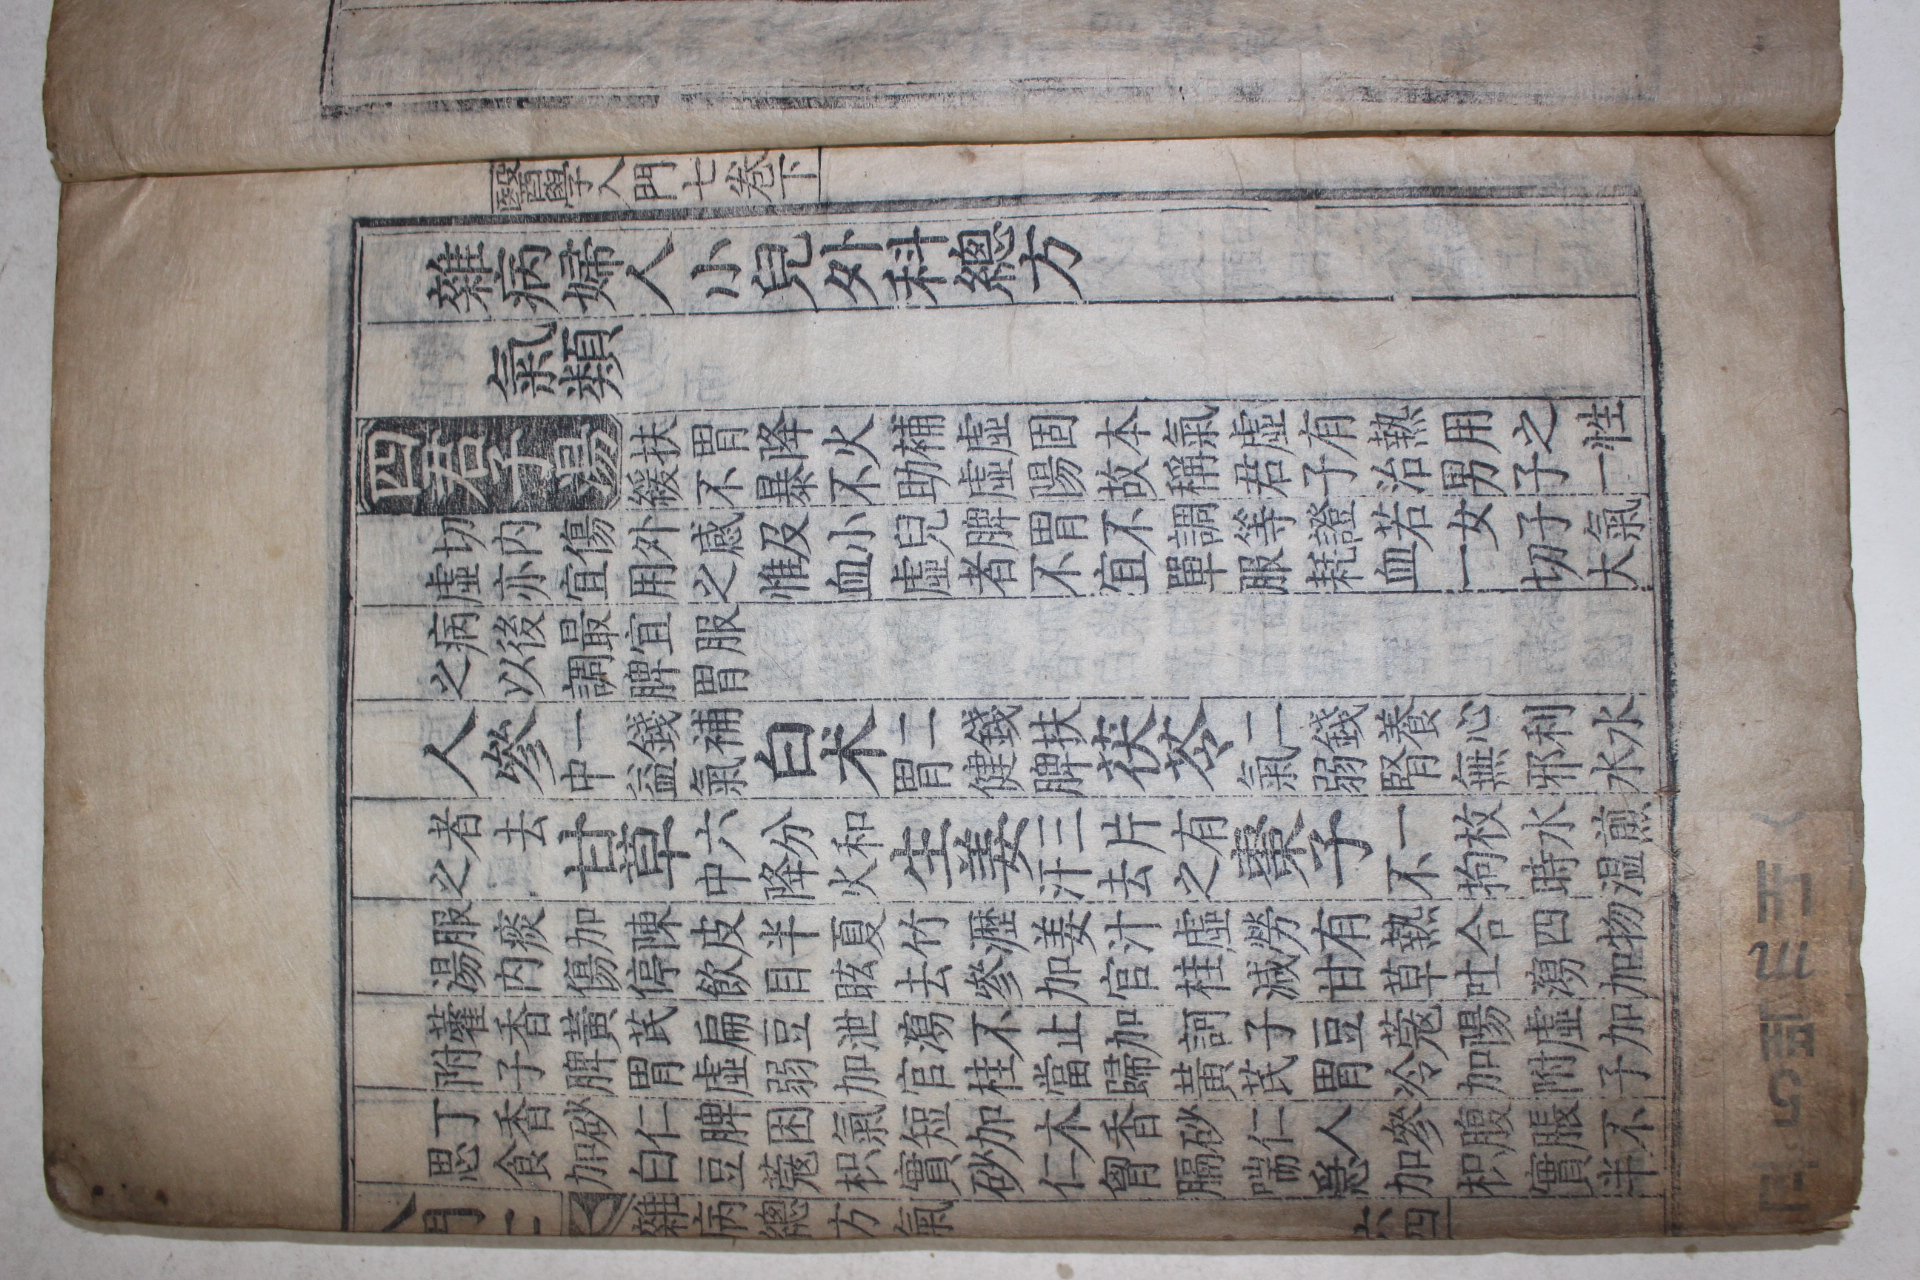 醫學入門七卷下
雜病婦人小兒外科總方
氣類
四君子湯
扶胃降火補虛固本氣虛有熱用之性
緩不暴不助虛陽故稱君子治男子一
切內傷外感及小兒脾胃不調等證若女子氣
虛亦宜用之惟血虛者不宜單服耗血一切大
病後最宜服
之以調脾胃
人參
一錢補
中益氣
白朮
二錢扶
胃健脾
茯苓
二錢養心利水
氣弱腎無邪水
者去
之
甘草
六分和
中降火
生姜
三片有
汗去之
棗子
一枚水煎
不拘時温
服痰加陳皮半夏竹瀝姜汁虛勞有熱合四物
湯內傷停飲目眩去參加官桂減甘草吐瀉加
藿香黃芪扁豆泄瀉不止加訶子豆蔻陽虛加
附子脾胃虛弱加官桂當歸黃芪胃冷加附子
丁香砂仁脾困氣短加木香砂仁人參腹脹不
思食加白豆蔻枳實砂仁胷膈喘急加枳實半
入門
雜病總方氣
六四